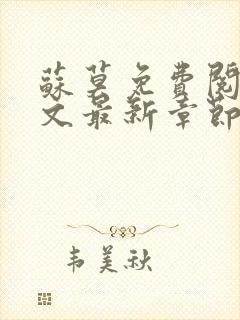 蘇莫免費閱
文最新章節
韦美秋